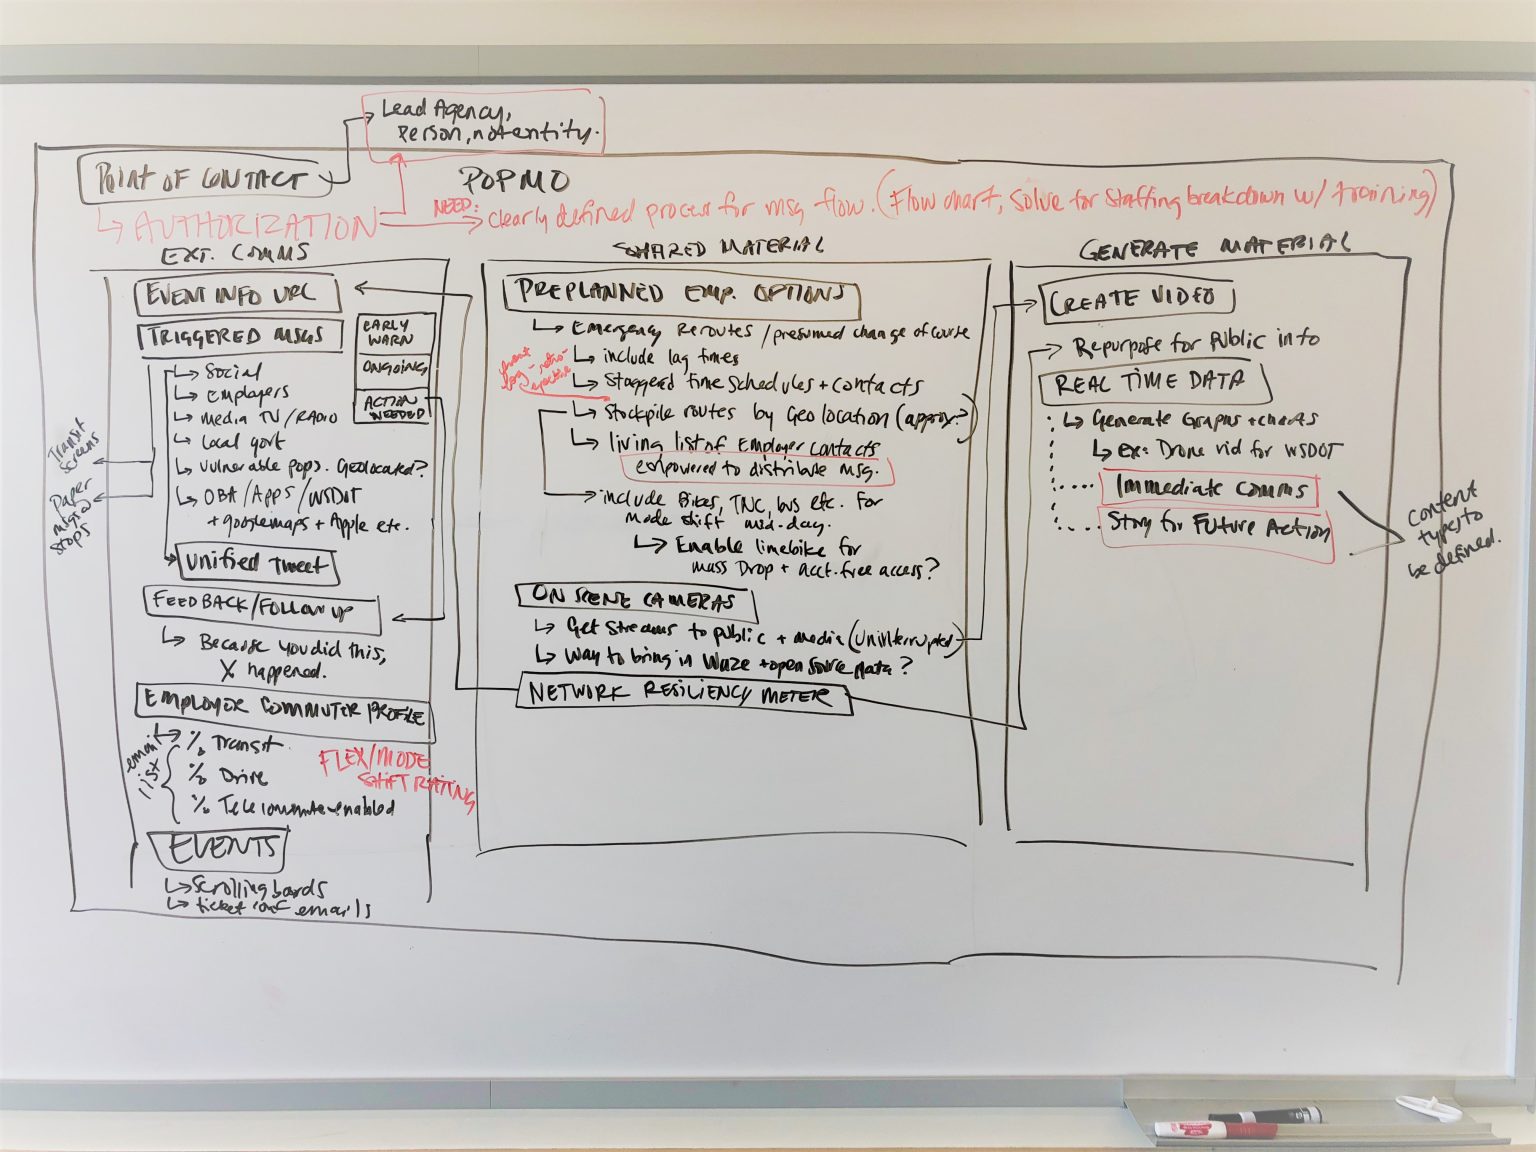 Lead Agency,
Person, not entity.
POINT OF CONTACT
POPMO
↳ AUTHORIZATION
NEED:
clearly defined process for msg flow. (Flow chart, solve for staffing breakdown w/ training)
EXT. COMMS
EVENT INFO URL
TRIGGERED MSGS
EARLY
WARN
ONGOING
ACTION
NEEDED
↳ Social
↳ employers
↳ media TV/RADIO
↳ local govt
↳ vulnerable pops. Geolocated?
↳ OBA/Apps/WSDOT
+ googlemaps + Apple etc.
Transit
screens
Paper
msgs @
stops
Unified Tweet
FEEDBACK/FOLLOW UP
↳ Because you did this,
X happened.
EMPLOYER COMMUTER PROFILE
email
list
% Transit
% Drive
% Telecommute-enabled
FLEX/MODE
SHIFT RATING
EVENTS
↳ scrolling boards
↳ ticket emails
SHARED MATERIAL
PREPLANNED EMP. OPTIONS
↳ Emergency Reroutes/presumed change of course
↳ include lag times
↳ Staggered time schedules + contacts
↳ Stockpile routes by Geolocation (approx?)
↳ living list of Employer contacts
empowered to distribute msg.
include Bikes, TNC, bus etc. for
Mode shift mid-day.
↳ Enable limebike for
mass Drop + acct. free access?
ON SCENE CAMERAS
↳ Get Streams to public + media (uninterrupted)
↳ Way to bring in Waze + open source data?
NETWORK RESILIENCY METER
GENERATE MATERIAL
CREATE VIDEO
Repurpose for Public info
REAL TIME DATA
↳ Generate Graphs + charts
↳ ex: Drone vid for WSDOT
Immediate comms
Story for Future Action
Content
types to
be defined.